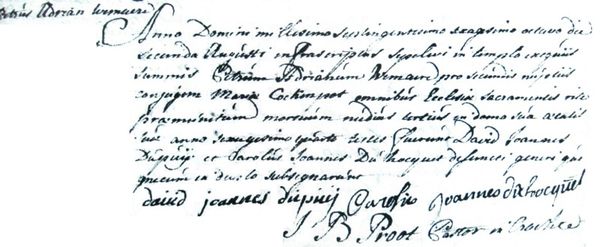 Petrus Adrian Wemaere
Anno Domini millesimo septingentesimo sexagesimo octavo die
secunda Augusti infrascriptus sepelivi in templo exequiis
summis Petrum Adrianum Wemaere pro secundis nuptiis
conjugem Maria Cockenpot omnibus Ecclesia sacramentis rite
præmunitum mortuum nudius tertius in domo sua ætatis
suæ anno sexagesimo quarto testes fuerunt David Joannes
Dupuij et Carolus Joannes Du hocquet defuncti generi qui
mecum ea de subsignarunt
david joannes dupuij Carolus joannes du hocquet
J B Proot Pastor in